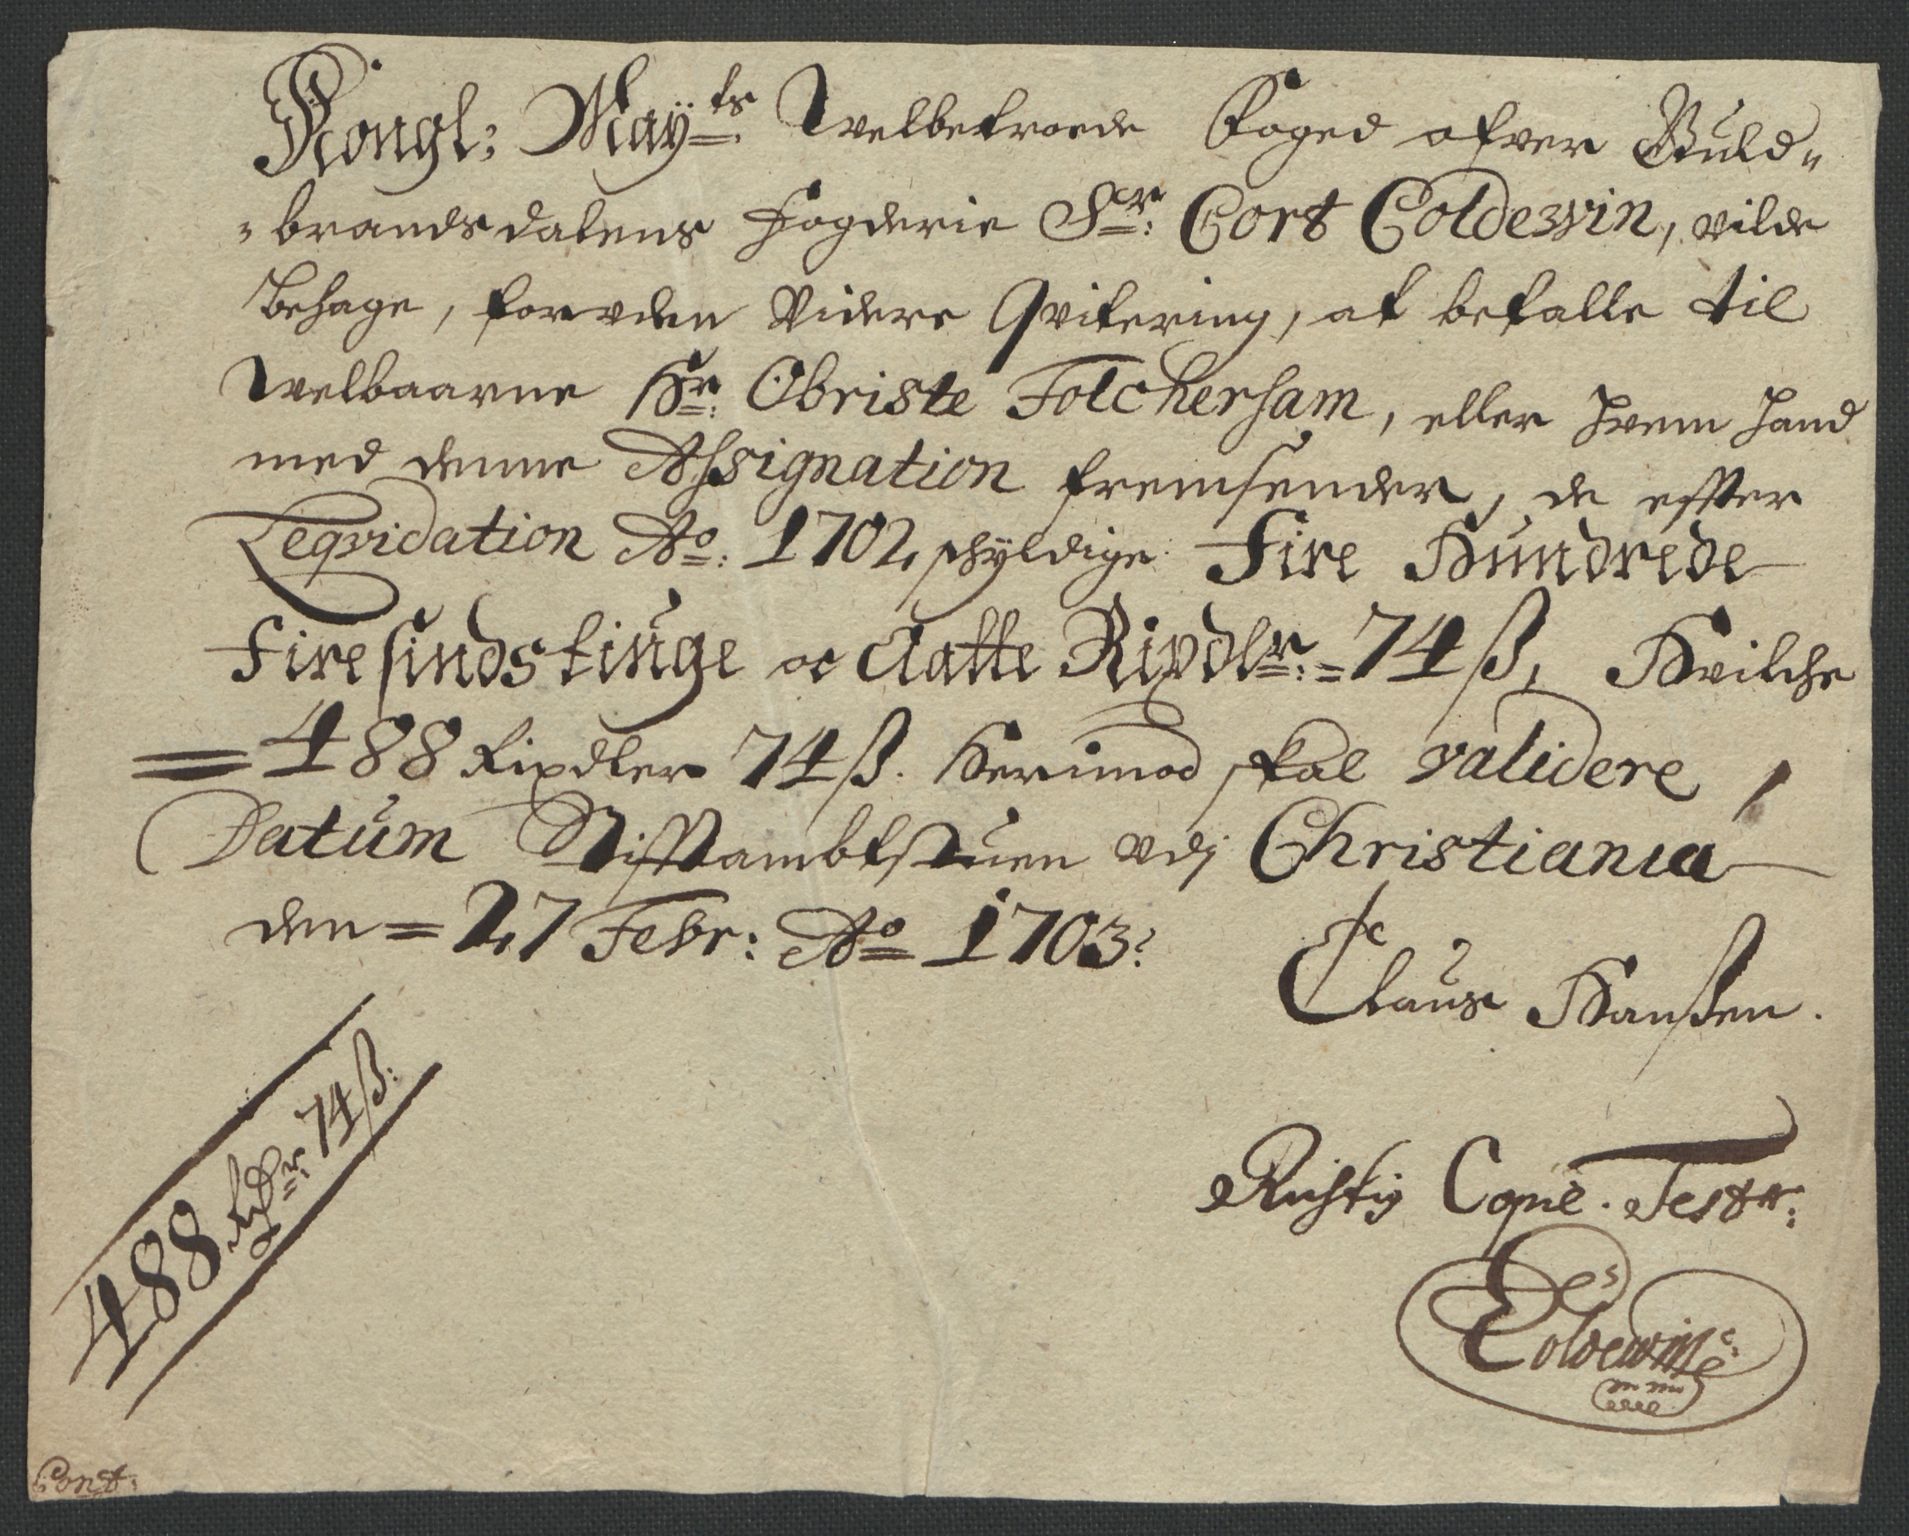 Kongl: Maÿts Welbetroede Foged ofver Guld=
=brandsdalens Fogderie Sr: Cort Coldewin, vilde
behage, foruden Videre Qvitering, at betalle til
Welbaarne Hr: Obriste Folchersam, eller hvem hand
med denne Assignation fremsender, de effter
Leqvidation Ao: 1702 schÿldige Fire Hundrede
Firesindstiuge oc Aatte Rixdlr: = 74 ß, Hvilche
= 488 Rixdler 74 ß. Herimod skal validere,
Datum Stifftambtstuen vdj Christiania
den = 27 Febr: Ao 1703.
Claus Hanßen.
488 Rixdr: 74 ß:
Richtig Copie. Test:
Coldewin
Cont: